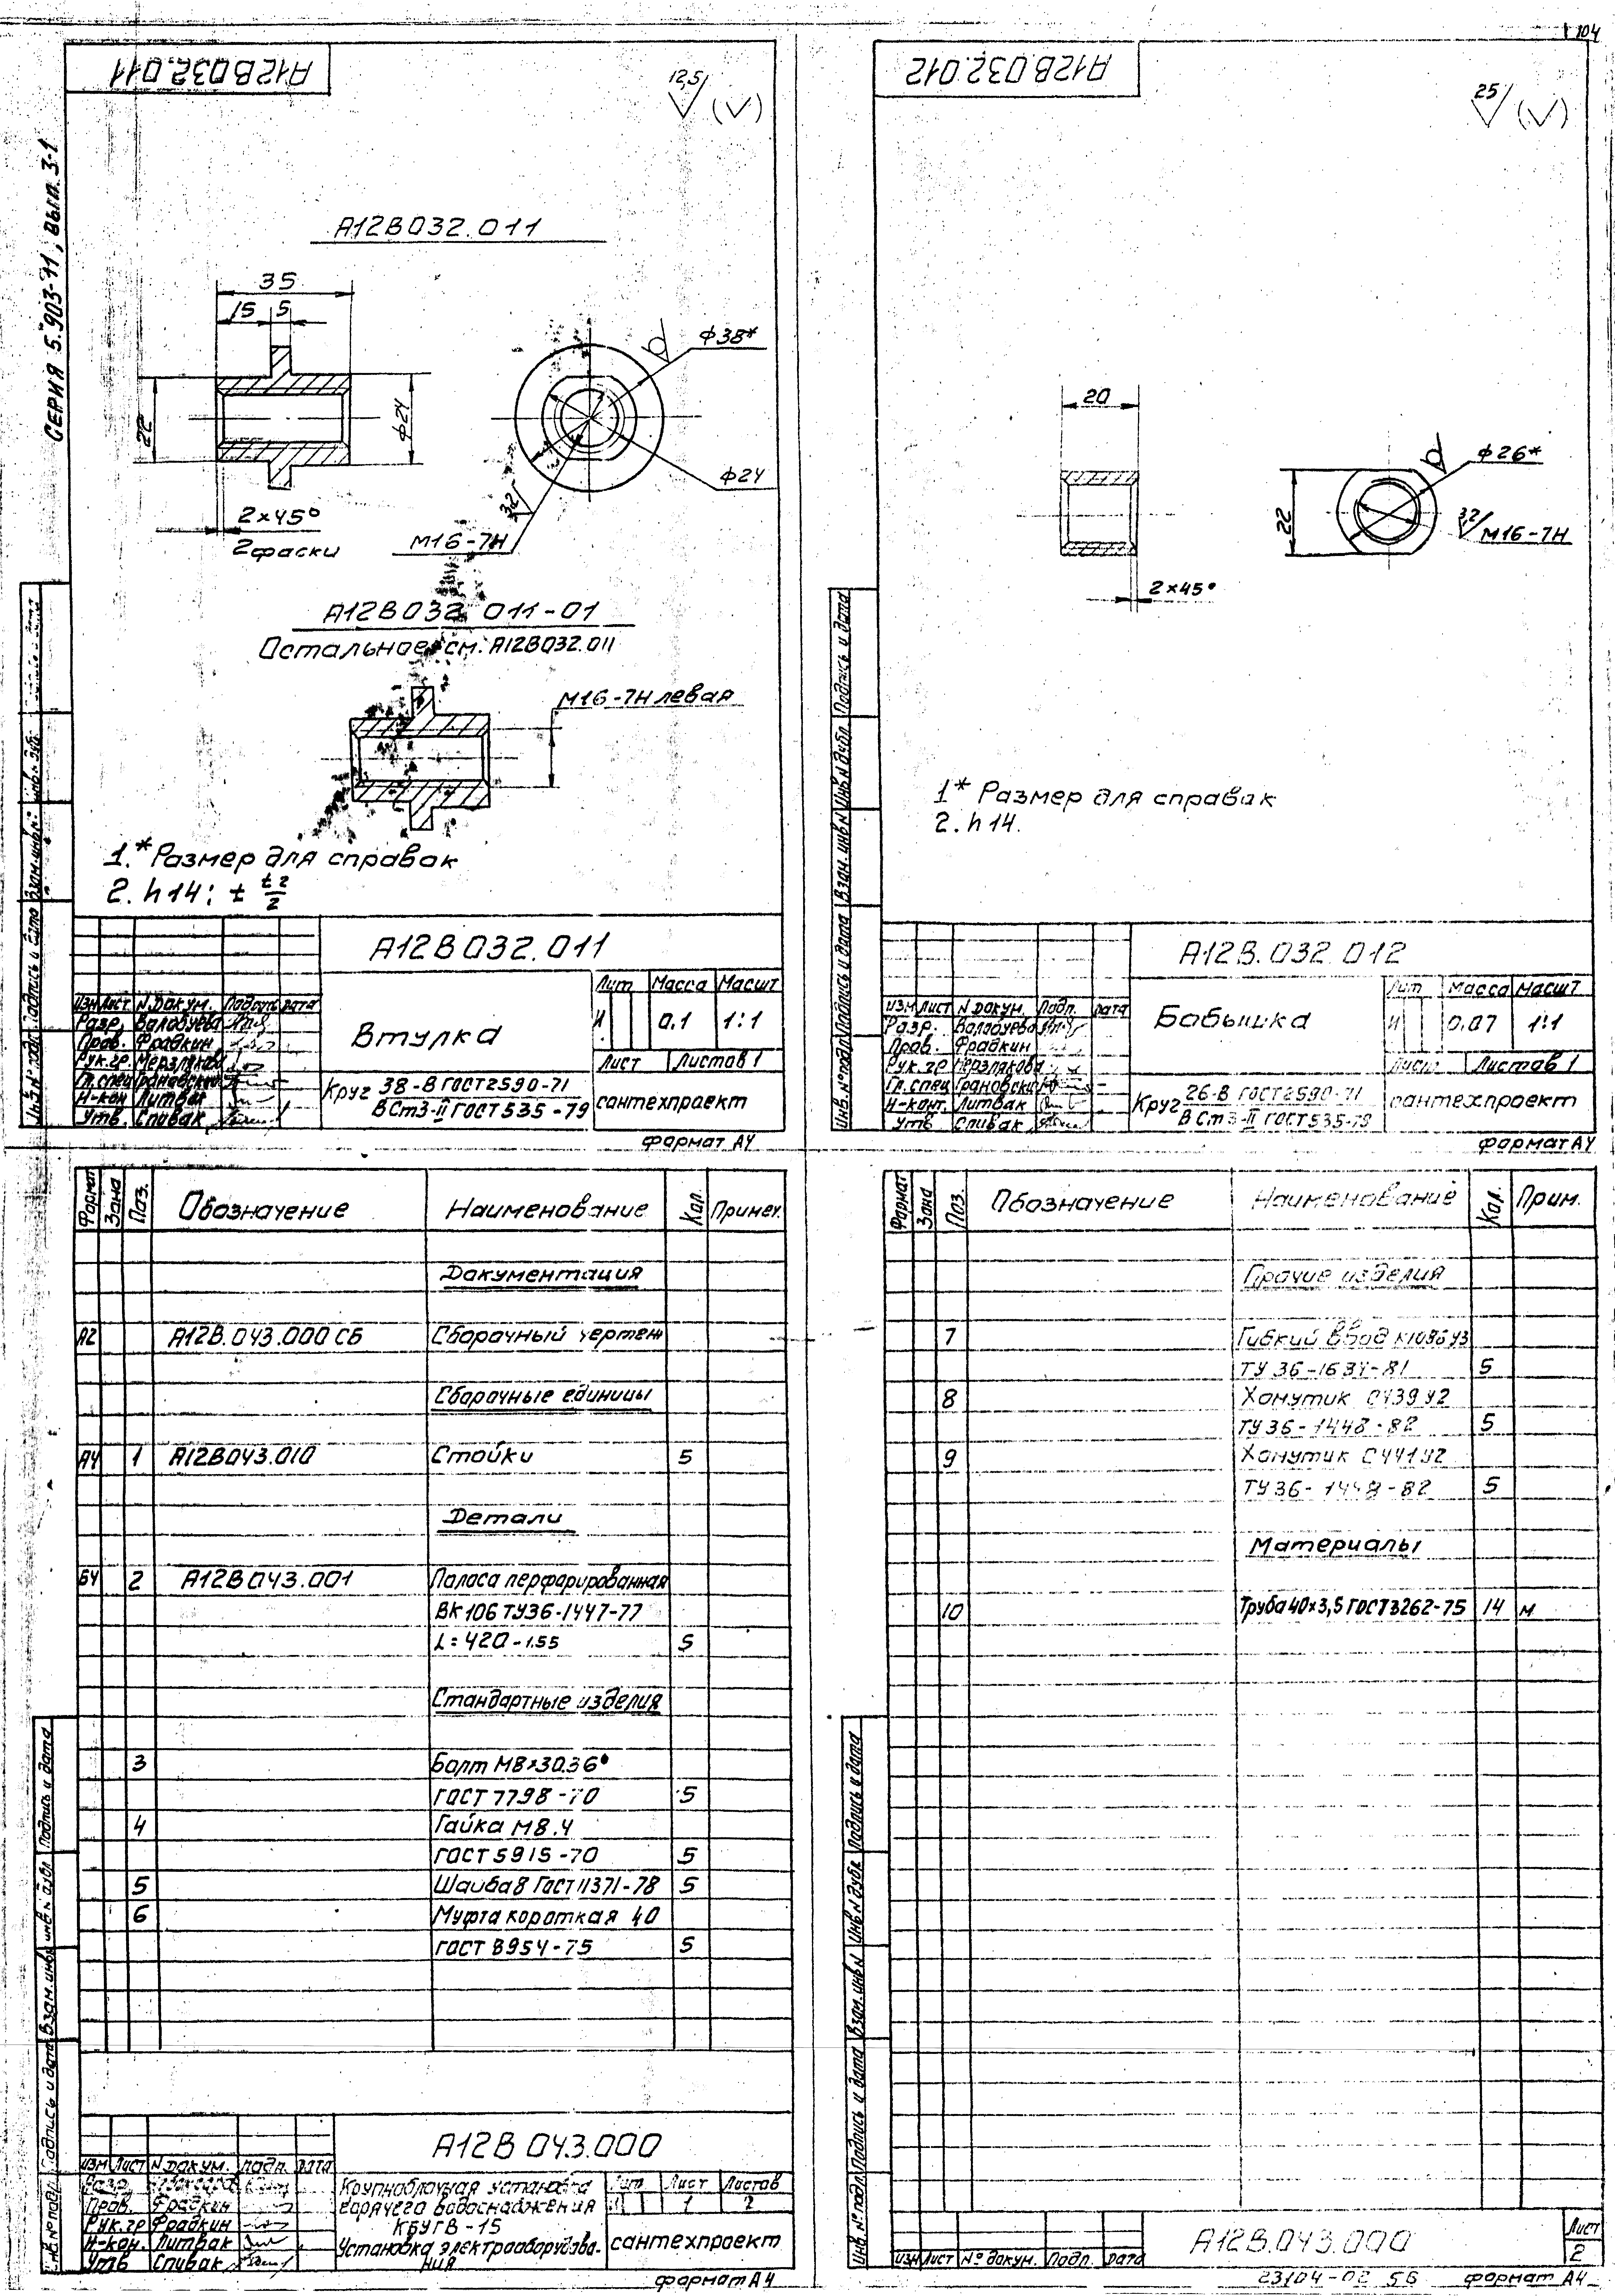 104
А12В032.011
12,5
СЕРИЯ 5.903-11, вып. 3-1
А12В032.011
35
15 5
22
ф24
2×45°
2 фаски
ф38*
ф24
3,2
М16-7Н
А12В032.011-01
Остальное см. А12В032.011
М16-7Н левая
1.* Размер для справок
2. h14; ± t2/2
А12В032.011
Изм Лист N. докум. Подпись Дата
Разр. Волобуева
Пров. Фрадкин
Рук.гр. Мерзлякова
Гл.спец Грановский
Н-кон Литвак
Утв. Спивак
Втулка
Лит Масса Масшт
И 0.1 1:1
Лист Листов 1
Круг 38-В ГОСТ 2590-71
ВСт3-II ГОСТ 535-79
сантехпроект
формат А4
Инв.N подл. Подпись и дата Взам.инв.N Инв.N дубл.
А12В032.012
25
20
2×45°
22
ф26*
3,2
М16-7Н
1* Размер для справок
2. h14.
А12В.032.012
Изм Лист N докум. Подп. Дата
Разр. Волобуева
Пров. Фрадкин
Рук.гр Мерзлякова
Гл.спец Грановский
Н-конт. Литвак
Утв Спивак
Бобышка
Лит Масса Масшт
И 0.07 1:1
Лист Листов 1
Круг 26-В ГОСТ 2590-71
ВСт3-II ГОСТ 535-79
сантехпроект
формат А4
Инв.N подл. Подпись и дата Взам.инв.N Инв.N дубл. Подпись и дата
Формат Зона Поз. Обозначение Наименование Кол. Примеч.
Документация
А2 А12В.043.000 СБ Сборочный чертеж
Сборочные единицы
А4 1 А12В043.010 Стойки 5
Детали
БЧ 2 А12В043.001 Полоса перфорированная
ВК106 ТУ36-1447-77
L=420-1.55 5
Стандартные изделия
3 Болт М8×30.36
ГОСТ 7798-70 5
4 Гайка М8.4
ГОСТ 5915-70 5
5 Шайба 8 ГОСТ 11371-78 5
6 Муфта короткая 40
ГОСТ 8954-75 5
А12В 043.000
Изм Лист N докум. Подп. Дата
Разр.
Пров. Фрадкин
Рук.гр Фрадкин
Н-кон. Литвак
Утв Спивак
Крупноблочная установка
горячего водоснабжения
КБУГВ-15
Установка электрооборудова-
ния
Лит Лист Листов
1 2
сантехпроект
формат А4
Инв.N подл. Подпись и дата Взам.инв.N Инв.N дубл. Подпись и дата
Формат Зона Поз. Обозначение Наименование Кол. Прим.
Прочие изделия
7 Гибкий ввод К1086У3
ТУ 36-1634-81 5
8 Хомутик С439У2
ТУ36-1448-82 5
9 Хомутик С441У2
ТУ36-1448-82 5
Материалы
10 Труба 40×3,5 ГОСТ 3262-75 14 м
Инв.N подл. Подпись и дата Взам.инв.N Инв.N дубл. Подпись и дата
Изм Лист № докум. Подп. Дата
А12В.043.000
Лист
2
23104-02 56 формат А4